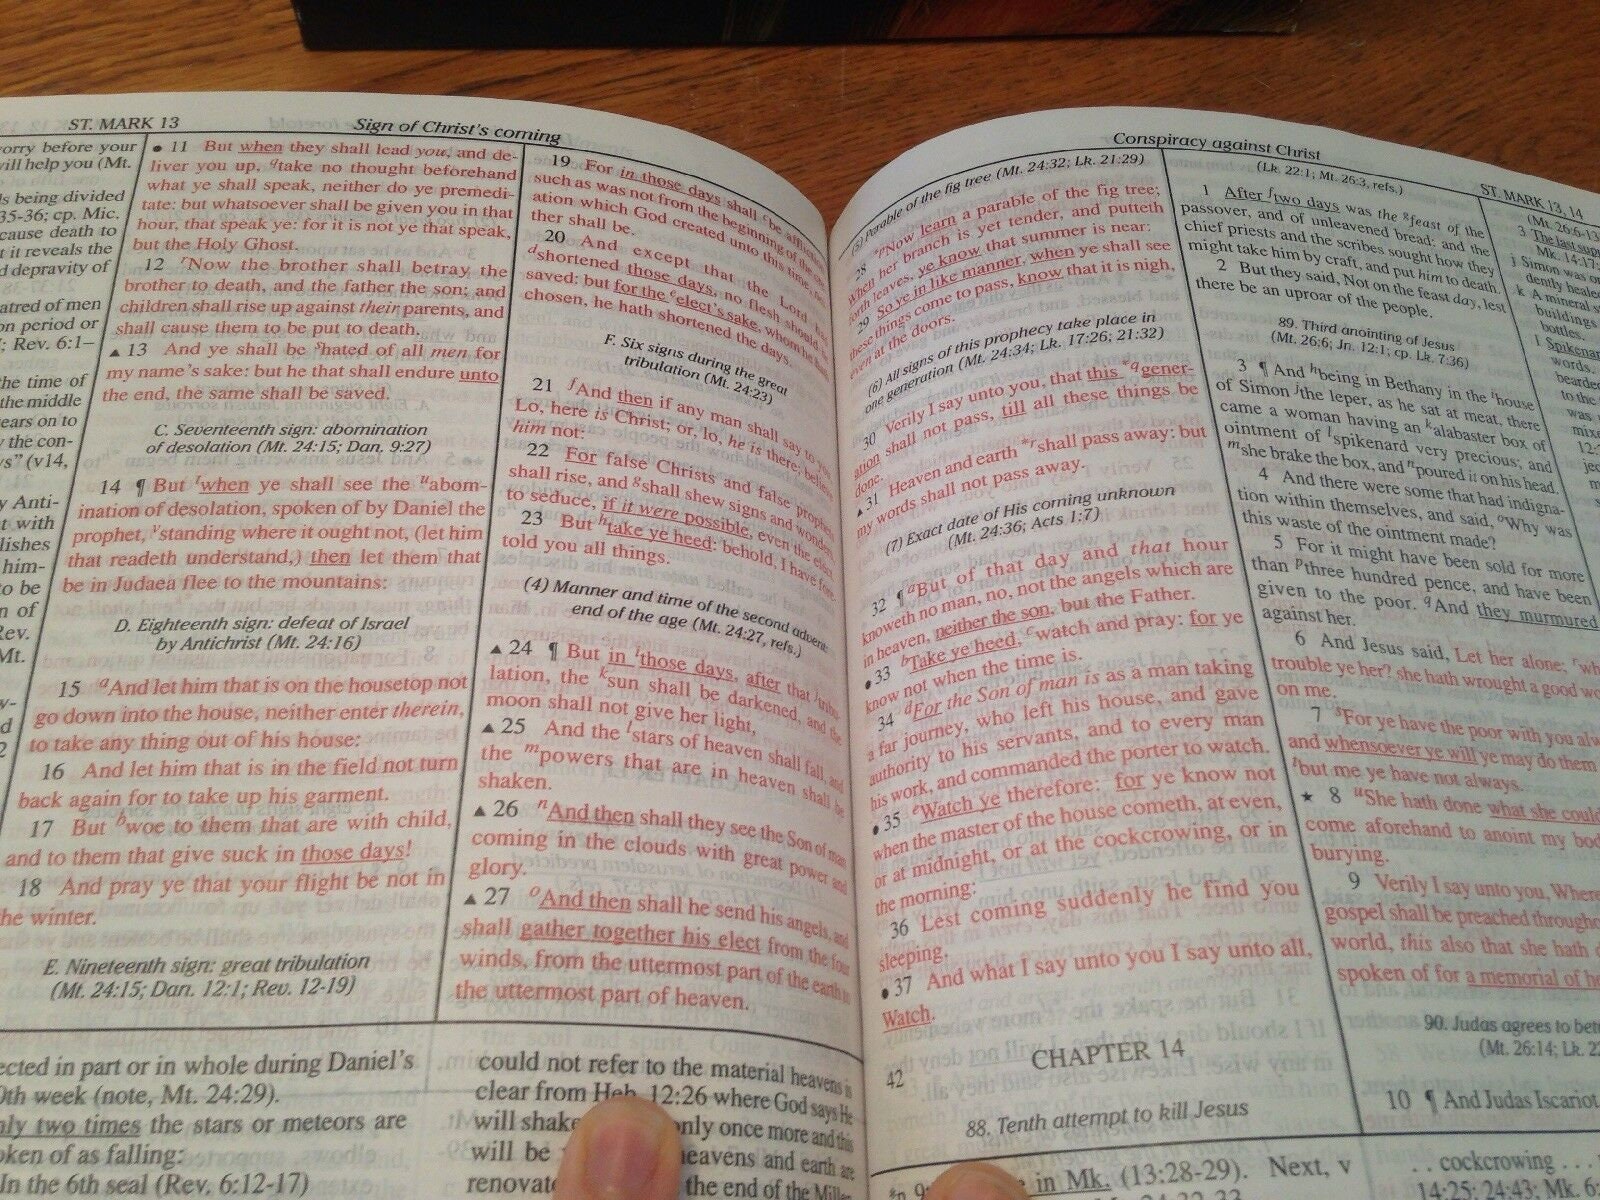 ST. MARK 13
Sign of Christ's coming
Conspiracy against Christ
ST. MARK 13, 14
orry before your
ill help you (Mt.
ls being divided
35-36; cp. Mic.
cause death to
t it reveals the
d depravity of
atred of men
on period or
; Rev. 6:1–
he time of
the middle
ears on to
y the con-
s" (v14,
y Anti-
t with
lishes
him-
o be
n of
Rev.
Mt.
• 11 But when they shall lead you, and de-
liver you up, qtake no thought beforehand
what ye shall speak, neither do ye premedi-
tate: but whatsoever shall be given you in that
hour, that speak ye: for it is not ye that speak,
but the Holy Ghost.
12 rNow the brother shall betray the
brother to death, and the father the son; and
children shall rise up against their parents, and
shall cause them to be put to death.
▲ 13 And ye shall be shated of all men for
my name's sake: but he that shall endure unto
the end, the same shall be saved.
C. Seventeenth sign: abomination
of desolation (Mt. 24:15; Dan. 9:27)
14 ¶ But twhen ye shall see the uabom-
ination of desolation, spoken of by Daniel the
prophet, vstanding where it ought not, (let him
that readeth understand,) then let them that
be in Judaea flee to the mountains:
D. Eighteenth sign: defeat of Israel
by Antichrist (Mt. 24:16)
15 aAnd let him that is on the housetop not
go down into the house, neither enter therein,
to take any thing out of his house:
16 And let him that is in the field not turn
back again for to take up his garment.
17 But bwoe to them that are with child,
and to them that give suck in those days!
18 And pray ye that your flight be not in
he winter.
E. Nineteenth sign: great tribulation
(Mt. 24:15; Dan. 12:1; Rev. 12-19)
19 For in those days shall cbe affliction,
such as was not from the beginning of the cre-
ation which God created unto this time, nei-
ther shall be.
20 And except that the Lord had
dshortened those days, no flesh should be
saved: but for the eelect's sake, whom he hath
chosen, he hath shortened the days.
F. Six signs during the great
tribulation (Mt. 24:23)
21 fAnd then if any man shall say to you,
Lo, here is Christ; or, lo, he is there; believe
him not:
22 For false Christs and false prophets
shall rise, and gshall shew signs and wonders,
to seduce, if it were possible, even the elect.
23 But htake ye heed: behold, I have fore-
told you all things.
(4) Manner and time of the second advent:
end of the age (Mt. 24:27, refs.)
▲ 24 ¶ But in ithose days, after that jtribu-
lation, the ksun shall be darkened, and the
moon shall not give her light,
▲ 25 And the lstars of heaven shall fall, and
the mpowers that are in heaven shall be
shaken.
▲ 26 nAnd then shall they see the Son of man
coming in the clouds with great power and
glory.
▲ 27 oAnd then shall he send his angels, and
shall gather together his elect from the four
winds, from the uttermost part of the earth to
the uttermost part of heaven.
ected in part or in whole during Daniel's
0th week (note, Mt. 24:29).
nly two times the stars or meteors are
oken of as falling:
In the 6th seal (Rev. 6:12-17)
could not refer to the material heavens is
clear from Heb. 12:26 where God says He
will shake only once more and this
will be heavens and earth are
renovate the end of the Millen
(5) Parable of the fig tree (Mt. 24:32; Lk. 21:29)
28 pNow learn a parable of the fig tree;
When her branch is yet tender, and putteth
forth leaves, ye know that summer is near:
29 So ye in like manner, when ye shall see
these things come to pass, know that it is nigh,
even at the doors.
(6) All signs of this prophecy take place in
one generation (Mt. 24:34; Lk. 17:26; 21:32)
30 Verily I say unto you, that this *qgener-
ation shall not pass, till all these things be
done.
▲ 31 Heaven and earth *rshall pass away: but
my words shall not pass away.
(7) Exact date of His coming unknown
(Mt. 24:36; Acts 1:7)
32 ¶ aBut of that day and that hour
knoweth no man, no, not the angels which are
in heaven, neither the son, but the Father.
• 33 bTake ye heed, cwatch and pray: for ye
know not when the time is.
34 dFor the Son of man is as a man taking
a far journey, who left his house, and gave
authority to his servants, and to every man
his work, and commanded the porter to watch.
• 35 eWatch ye therefore: for ye know not
when the master of the house cometh, at even,
or at midnight, or at the cockcrowing, or in
the morning:
36 Lest coming suddenly he find you
sleeping.
• 37 And what I say unto you I say unto all,
Watch.
42 CHAPTER 14
88. Tenth attempt to kill Jesus
(Lk. 22:1; Mt. 26:3, refs.)
1 After ftwo days was the gfeast of the
passover, and of unleavened bread: and the
chief priests and the scribes sought how they
might take him by craft, and put him to death.
2 But they said, Not on the feast day, lest
there be an uproar of the people.
89. Third anointing of Jesus
(Mt. 26:6; Jn. 12:1; cp. Lk. 7:36)
3 ¶ And hbeing in Bethany in the ihouse
of Simon jthe leper, as he sat at meat, there
came a woman having an kalabaster box of
ointment of lspikenard very precious; and
mshe brake the box, and npoured it on his head.
4 And there were some that had indigna-
tion within themselves, and said, oWhy was
this waste of the ointment made?
5 For it might have been sold for more
than pthree hundred pence, and have been
given to the poor. qAnd they murmured
against her.
6 And Jesus said, Let her alone; rwh
trouble ye her? she hath wrought a good wo
on me.
7 sFor ye have the poor with you alw
and whensoever ye will ye may do them
tbut me ye have not always.
★ 8 uShe hath done what she could
come aforehand to anoint my bod
burying.
9 Verily I say unto you, Where
gospel shall be preached througho
world, this also that she hath d
spoken of for a memorial of he
90. Judas agrees to bet
(Mt. 26:14; Lk. 22
10 ¶ And Judas Iscariot
e in Mk. (13:28-29). Next, v
. . cockcrowing . . .
14:25; 24:43; Mk. 6:
(Mt. 26:6-13
3 The last supp
Mk. 14:17
j Simon was
dently heale
k A mineral s
buildings
bottles.
l Spikenar
words.
bearde
to the
was
mixe
12: